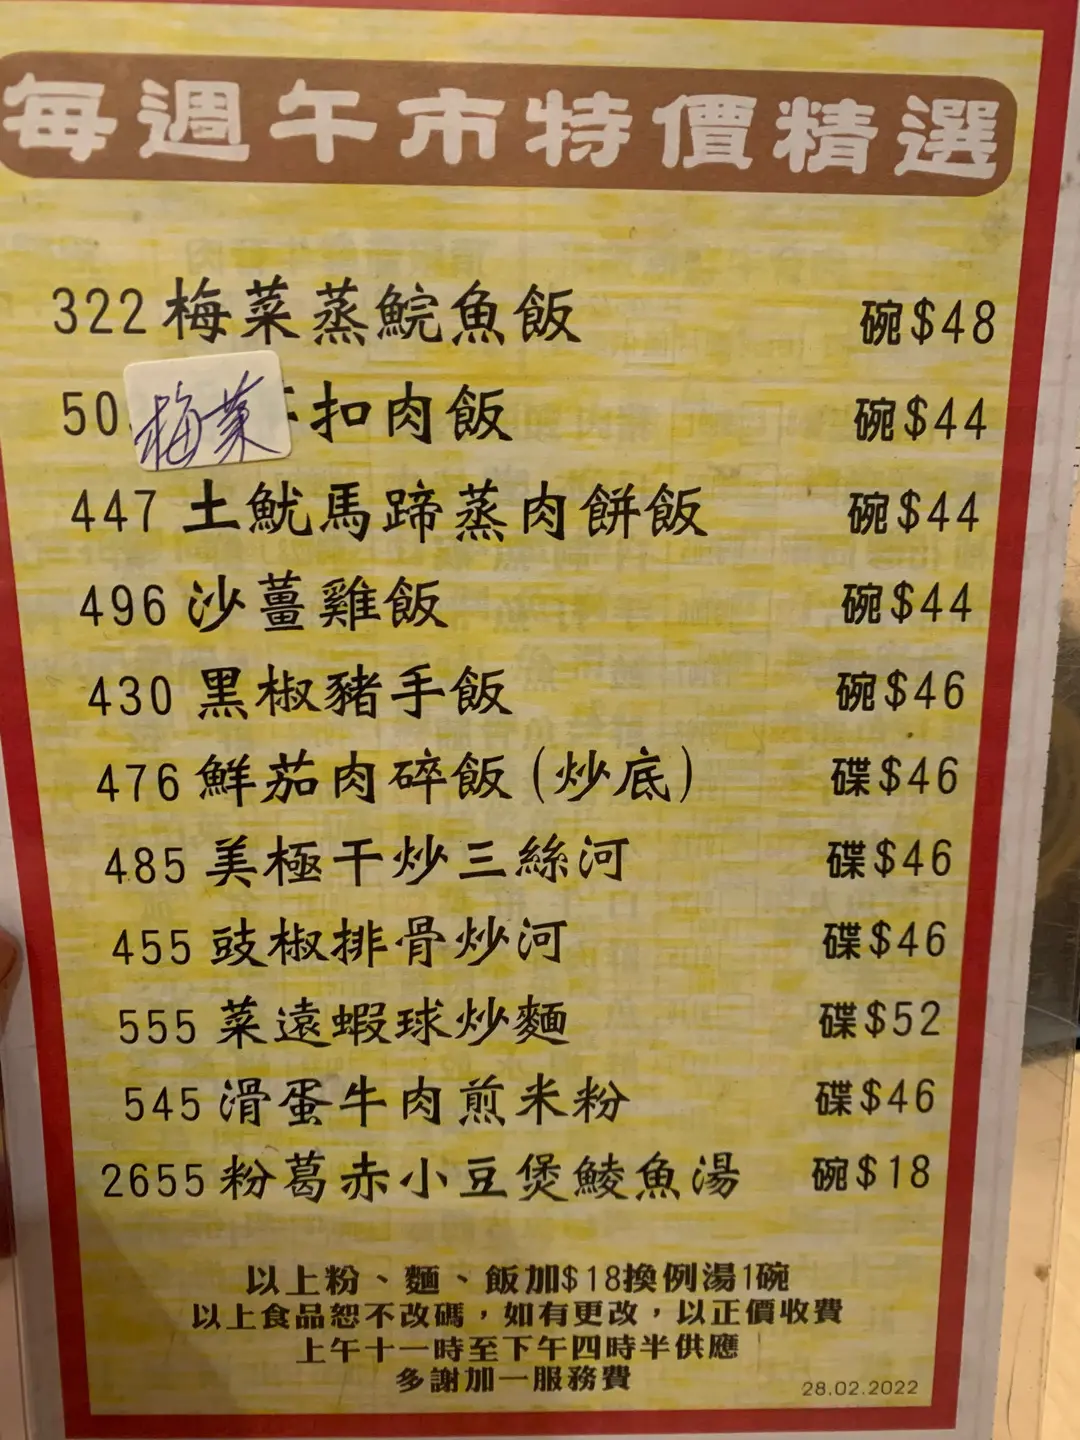 每週午市特價精選
322 梅菜蒸鯇魚飯 碗$48
50 梅菜 扣肉飯 碗$44
447 土魷馬蹄蒸肉餅飯 碗$44
496 沙薑雞飯 碗$44
430 黑椒豬手飯 碗$46
476 鮮茄肉碎飯(炒底) 碟$46
485 美極干炒三絲河 碟$46
455 豉椒排骨炒河 碟$46
555 菜遠蝦球炒麵 碟$52
545 滑蛋牛肉煎米粉 碟$46
2655 粉葛赤小豆煲鯪魚湯 碗$18
以上粉、麵、飯加$18換例湯1碗
以上食品恕不改碼，如有更改，以正價收費
上午十一時至下午四時半供應
多謝加一服務費
28.02.2022